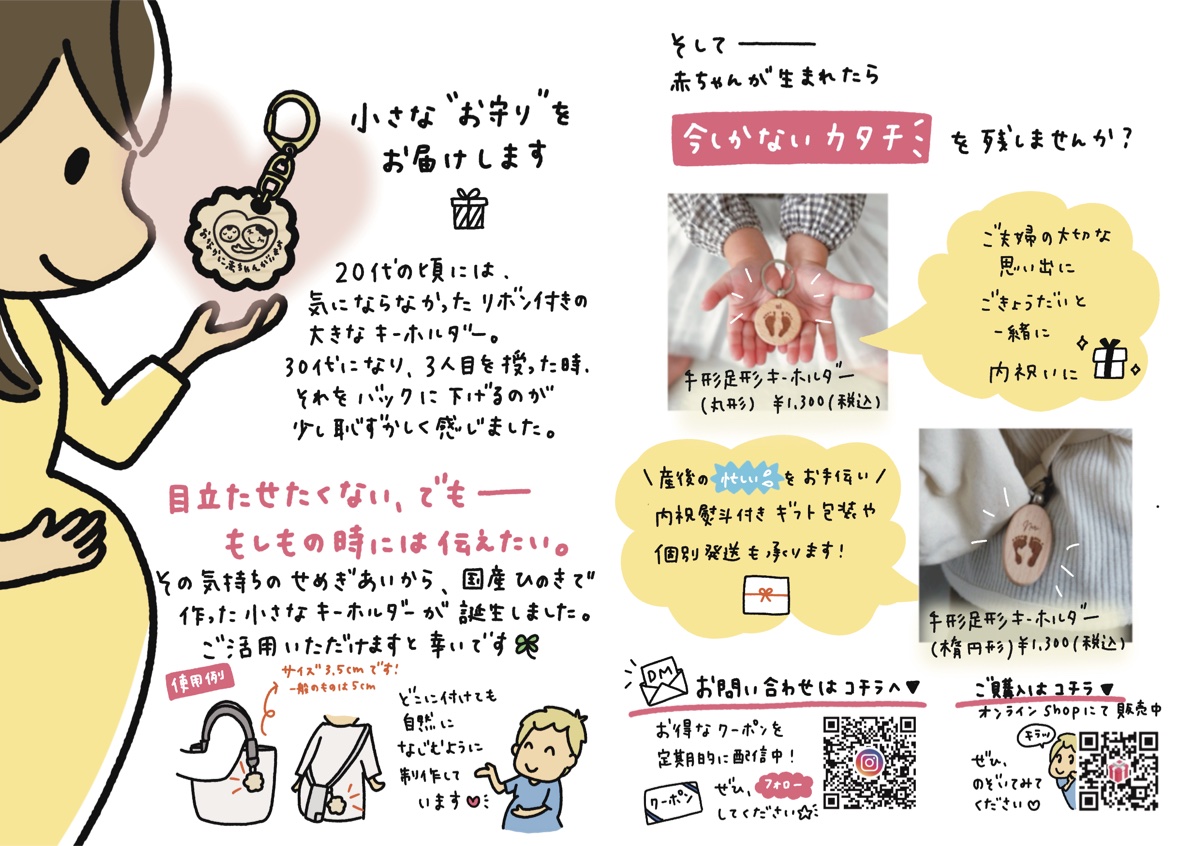 小さな"お守り"を
お届けします
おなかに赤ちゃんがいます
20代の頃には、
気にならなかったリボン付きの
大きなキーホルダー。
30代になり、3人目を授った時、
それをバックに下げるのが
少し恥ずかしく感じました。
目立たせたくない、でも──
もしもの時には伝えたい。
その気持ちのせめぎあいから、国産ひのきで
作った小さなキーホルダーが誕生しました。
ご活用いただけますと幸いです
使用例
サイズ3.5cmです!
一般のものは5cm
どこに付けても
自然に
なじむように
制作して
います
そして──
赤ちゃんが生まれたら
今しかないカタチ
を残しませんか?
手形足形キーホルダー
(丸形) ¥1,300(税込)
ご夫婦の大切な
思い出に
ごきょうだいと
一緒に
内祝いに
\産後の忙しいをお手伝い/
内祝熨斗付きギフト包装や
個別発送も承ります!
手形足形キーホルダー
(楕円形)¥1,300(税込)
DM
お問い合わせはコチラへ▼
お得なクーポンを
定期的に配信中!
クーポン
ぜひ、フォロー
してください☆
ご購入はコチラ▼
オンラインshopにて販売中
キラッ
ぜひ、
のぞいてみて
ください♡